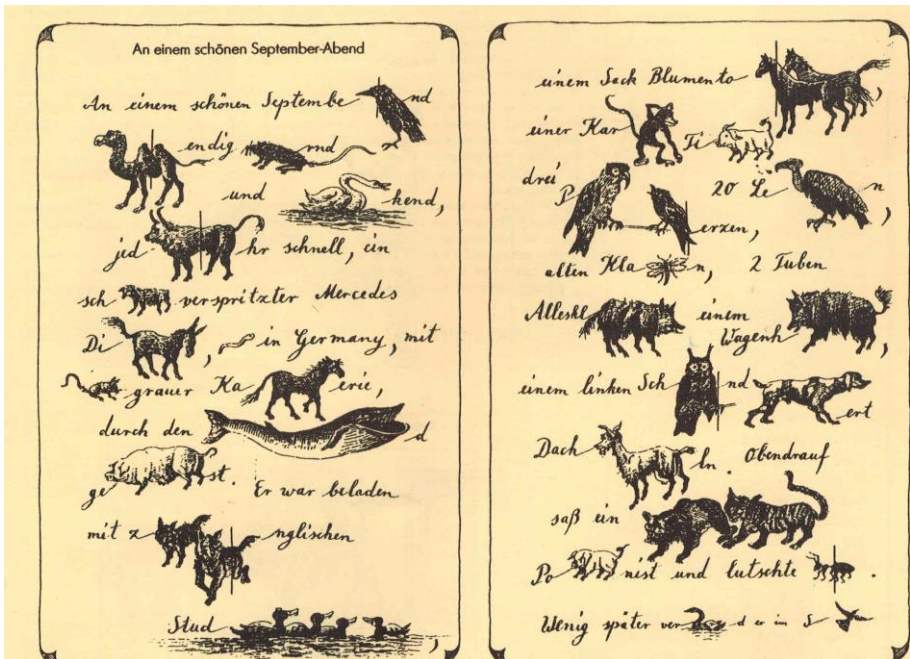 An einem schönen September-Abend
An einem schönen Septembe nd
endig rnd
und kend,
jed hr schnell, ein
sch verspritzter Mercedes
Di , in Germany, mit
grauer Ka erie,
durch den d
ge st. Er war beladen
mit z nglischen
Stud ,
einem Sack Blumento ,
einer Kar Ti
drei P 20 Le n,
erzen,
alten Kla n, 2 Tuben
Alleskl einem
Wagenh ,
einem linken Sch nd
ert
Dach ln. Obendrauf
saß ein
Po nist und lutschte .
Wenig später ver d er im S